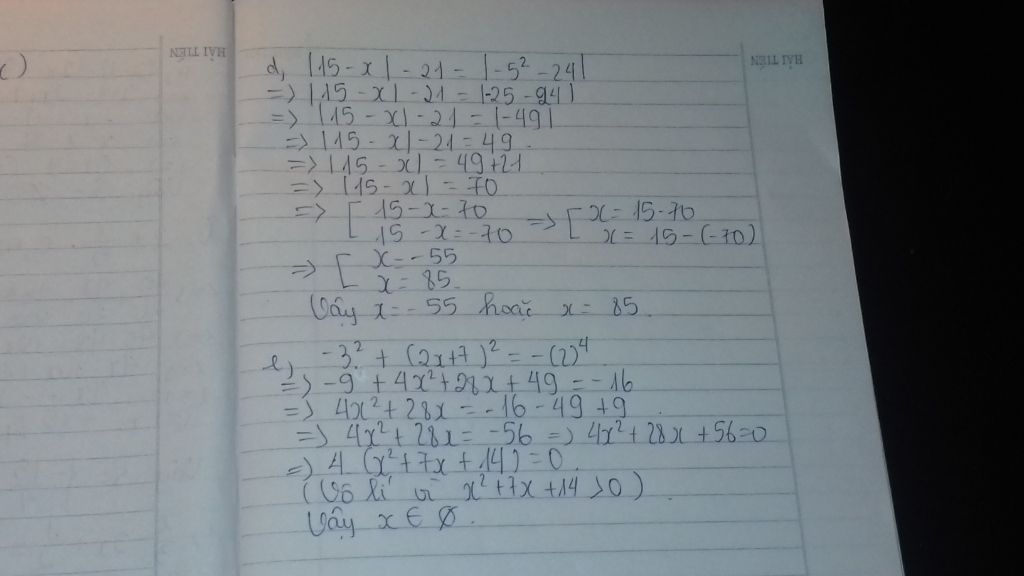 HẢI TIẾN
HẢI TIẾN
d, |15 - x| - 21 = |-5² - 24|
=> |15 - x| - 21 = |-25 - 24|
=> |15 - x| - 21 = |-49|
=> |15 - x| - 21 = 49.
=> |15 - x| = 49+21
=> |15 - x| = 70
=> [ 15 - x = 70 => [ x = 15-70
15 - x = -70 x = 15 - (-70)
=> [ x = -55
x = 85.
Vậy x = -55 hoặc x = 85.
e, -3² + (2x+7)² = -(2)⁴
=> -9 + 4x² + 28x + 49 = -16
=> 4x² + 28x = -16 - 49 + 9
=> 4x² + 28x = -56 => 4x² + 28x + 56 = 0
=> 4 (x² + 7x + 14) = 0
(Vô lí vì x² + 7x + 14 > 0)
Vậy x ∈ Ø.